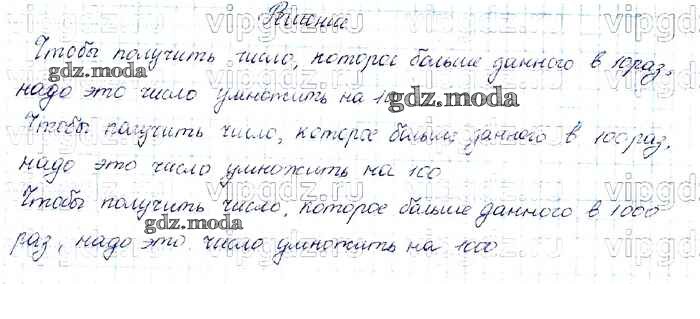 Решение
Чтобы получить число, которое больше данного в 10раз,
надо это число умножить на 10
Чтобы получить число, которое больше данного в 100раз,
надо это число умножить на 100
Чтобы получить число, которое больше данного в 1000
раз, надо это число умножить на 1000
vipgdz.ru
gdz.moda